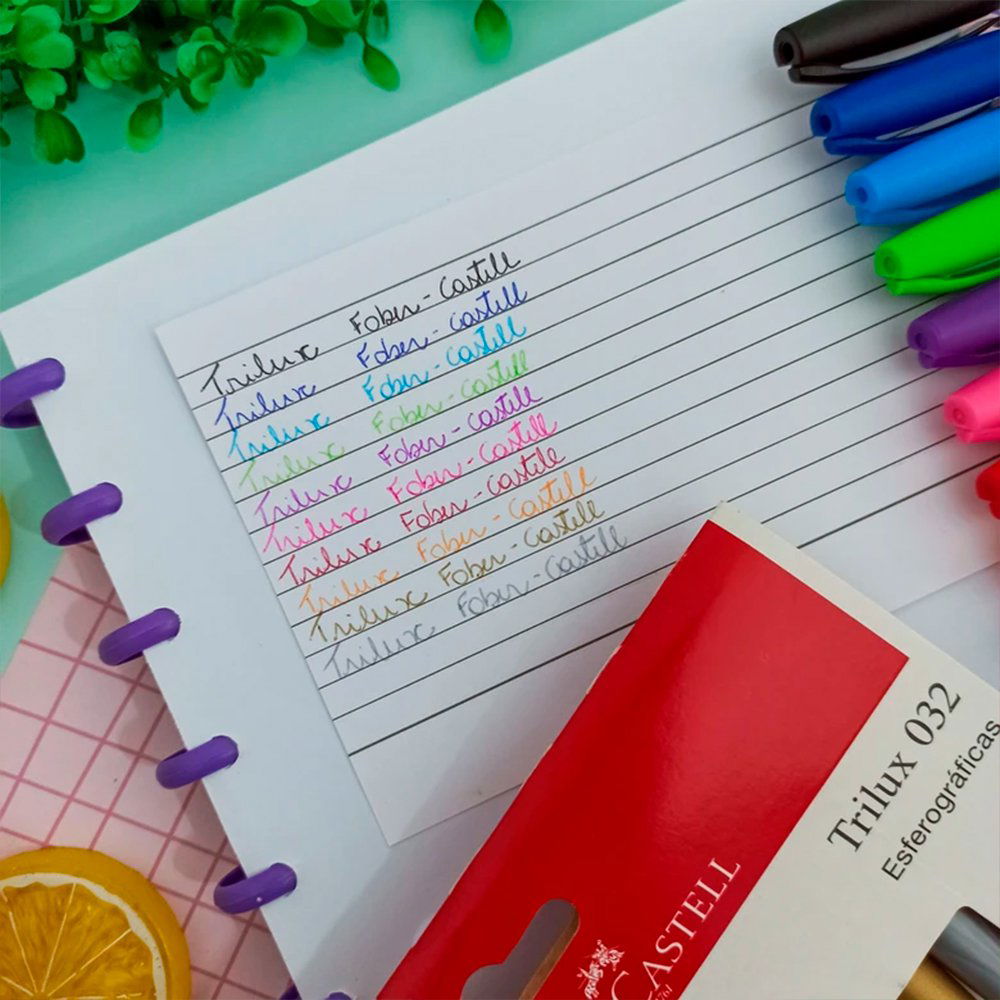 Trilux Faber-Castell
Trilux Faber-Castell
Trilux Faber-Castell
Trilux Faber-Castell
Trilux Faber-Castell
Trilux Faber-Castell
Trilux Faber-Castell
Trilux Faber-Castell
Trilux Faber-Castell
Trilux Faber-Castell
CASTELL
Trilux 032
Esferográficas